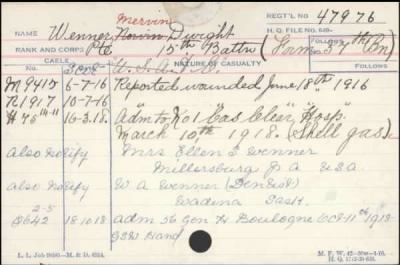 Mervin
REGT'L NO 47976
H. Q. FILE NO. 649-
NAME Wenner, Norvin Dwight
RANK AND CORPS Pte 15th Battn (Form 37th Bn)
CABLE NATURE OF CASUALTY FOLLOWS
No. DATE FOLLOWS
M9415 6-7-16 Reported wounded June 18th 1916
R1917 10-7-16
H76 16-3-18. Adm to No 1 Cas Clear Hosp.
March 10th 1918. (Shell gas)
also notify Mrs Ellen S Wenner
Millersburg Pa USA.
also notify W A Wenner (Dentist)
Wadina Sask.
2-5
Q642 18-10-18 adm 56 Gen H Boulogne Oct-11th 1918
GSW Hand
L. L. Job 3M. & D. 6354.
M. F. W. 42
H. Q. 1772-39-839.